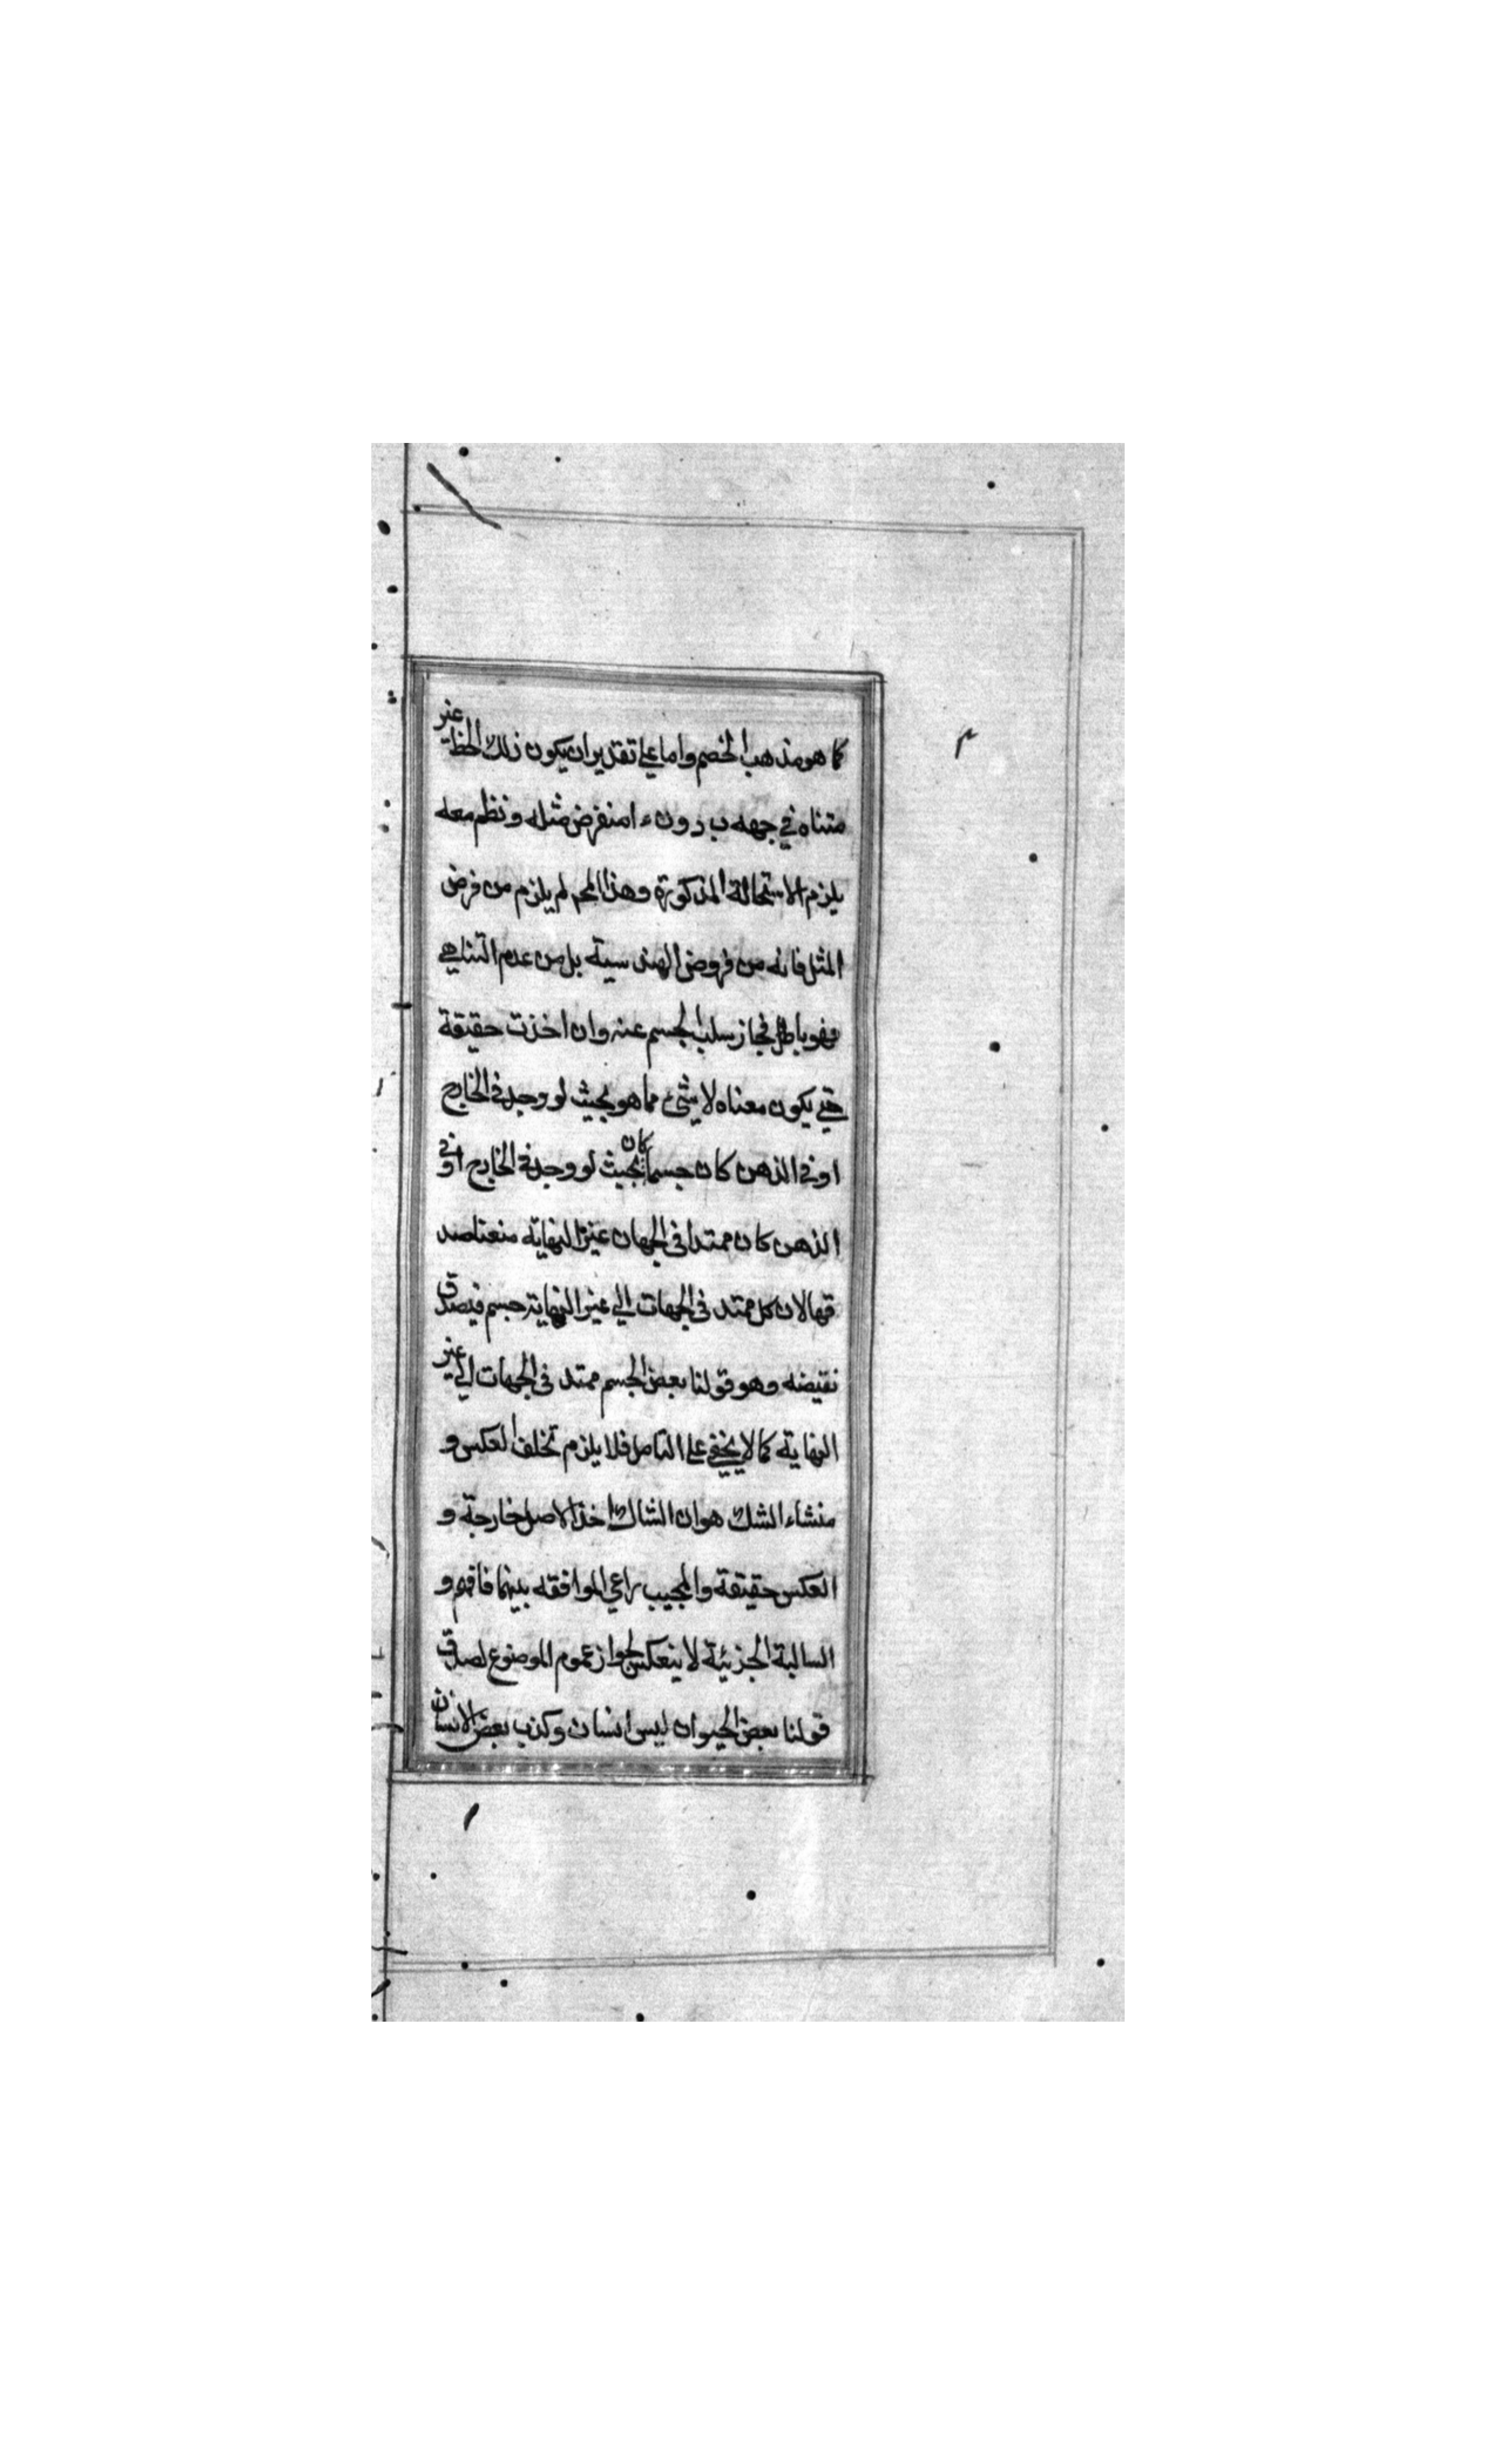 كما هو مذهب الخصم واما علي تقدير ان يكون ذلك الخط غير
متناه في جهه ب دون ء ا منفرض مثله ونظم معه
يلزم الاستحالة المذكورة وهذا المح لم يلزم من فرض
المثل فانه من فروض الهند سية بل من عدم التناهي
فهو باطل فجاز سلب الجسم عنه وان اخذت حقيقة
حتي يكون معناه لا شئ مما هو بحيث لو وجد في الخارج
او في الذهن كان جسما كان بحيث لو وجد في الخارج او في
الذهن كان ممتدا في الجهات غير النهاية منعنا صد
قها لان كل ممتد في الجهات الي غير النهاية جسم فيصدق
نقيضه وهو قولنا بعض الجسم ممتد في الجهات الي غير
النهاية كما لا يخفي علي التامل فلا يلزم تخلف العكس و
منشاء الشك هو ان الشاك اخذ الاصل خارجة و
العكس حقيقة والمجيب راعي الموافقه بينهما فافهم و
السالبة الجزئية لا ينعكس لجواز عموم الموضوع لصدق
قولنا بعض الحيوان ليس انسان وكذب بعض الانسان